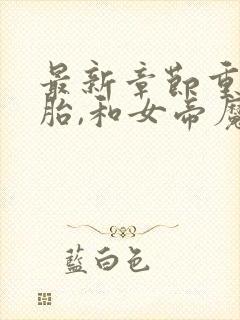 最新章節重
胎,和女帝魔
藍白色